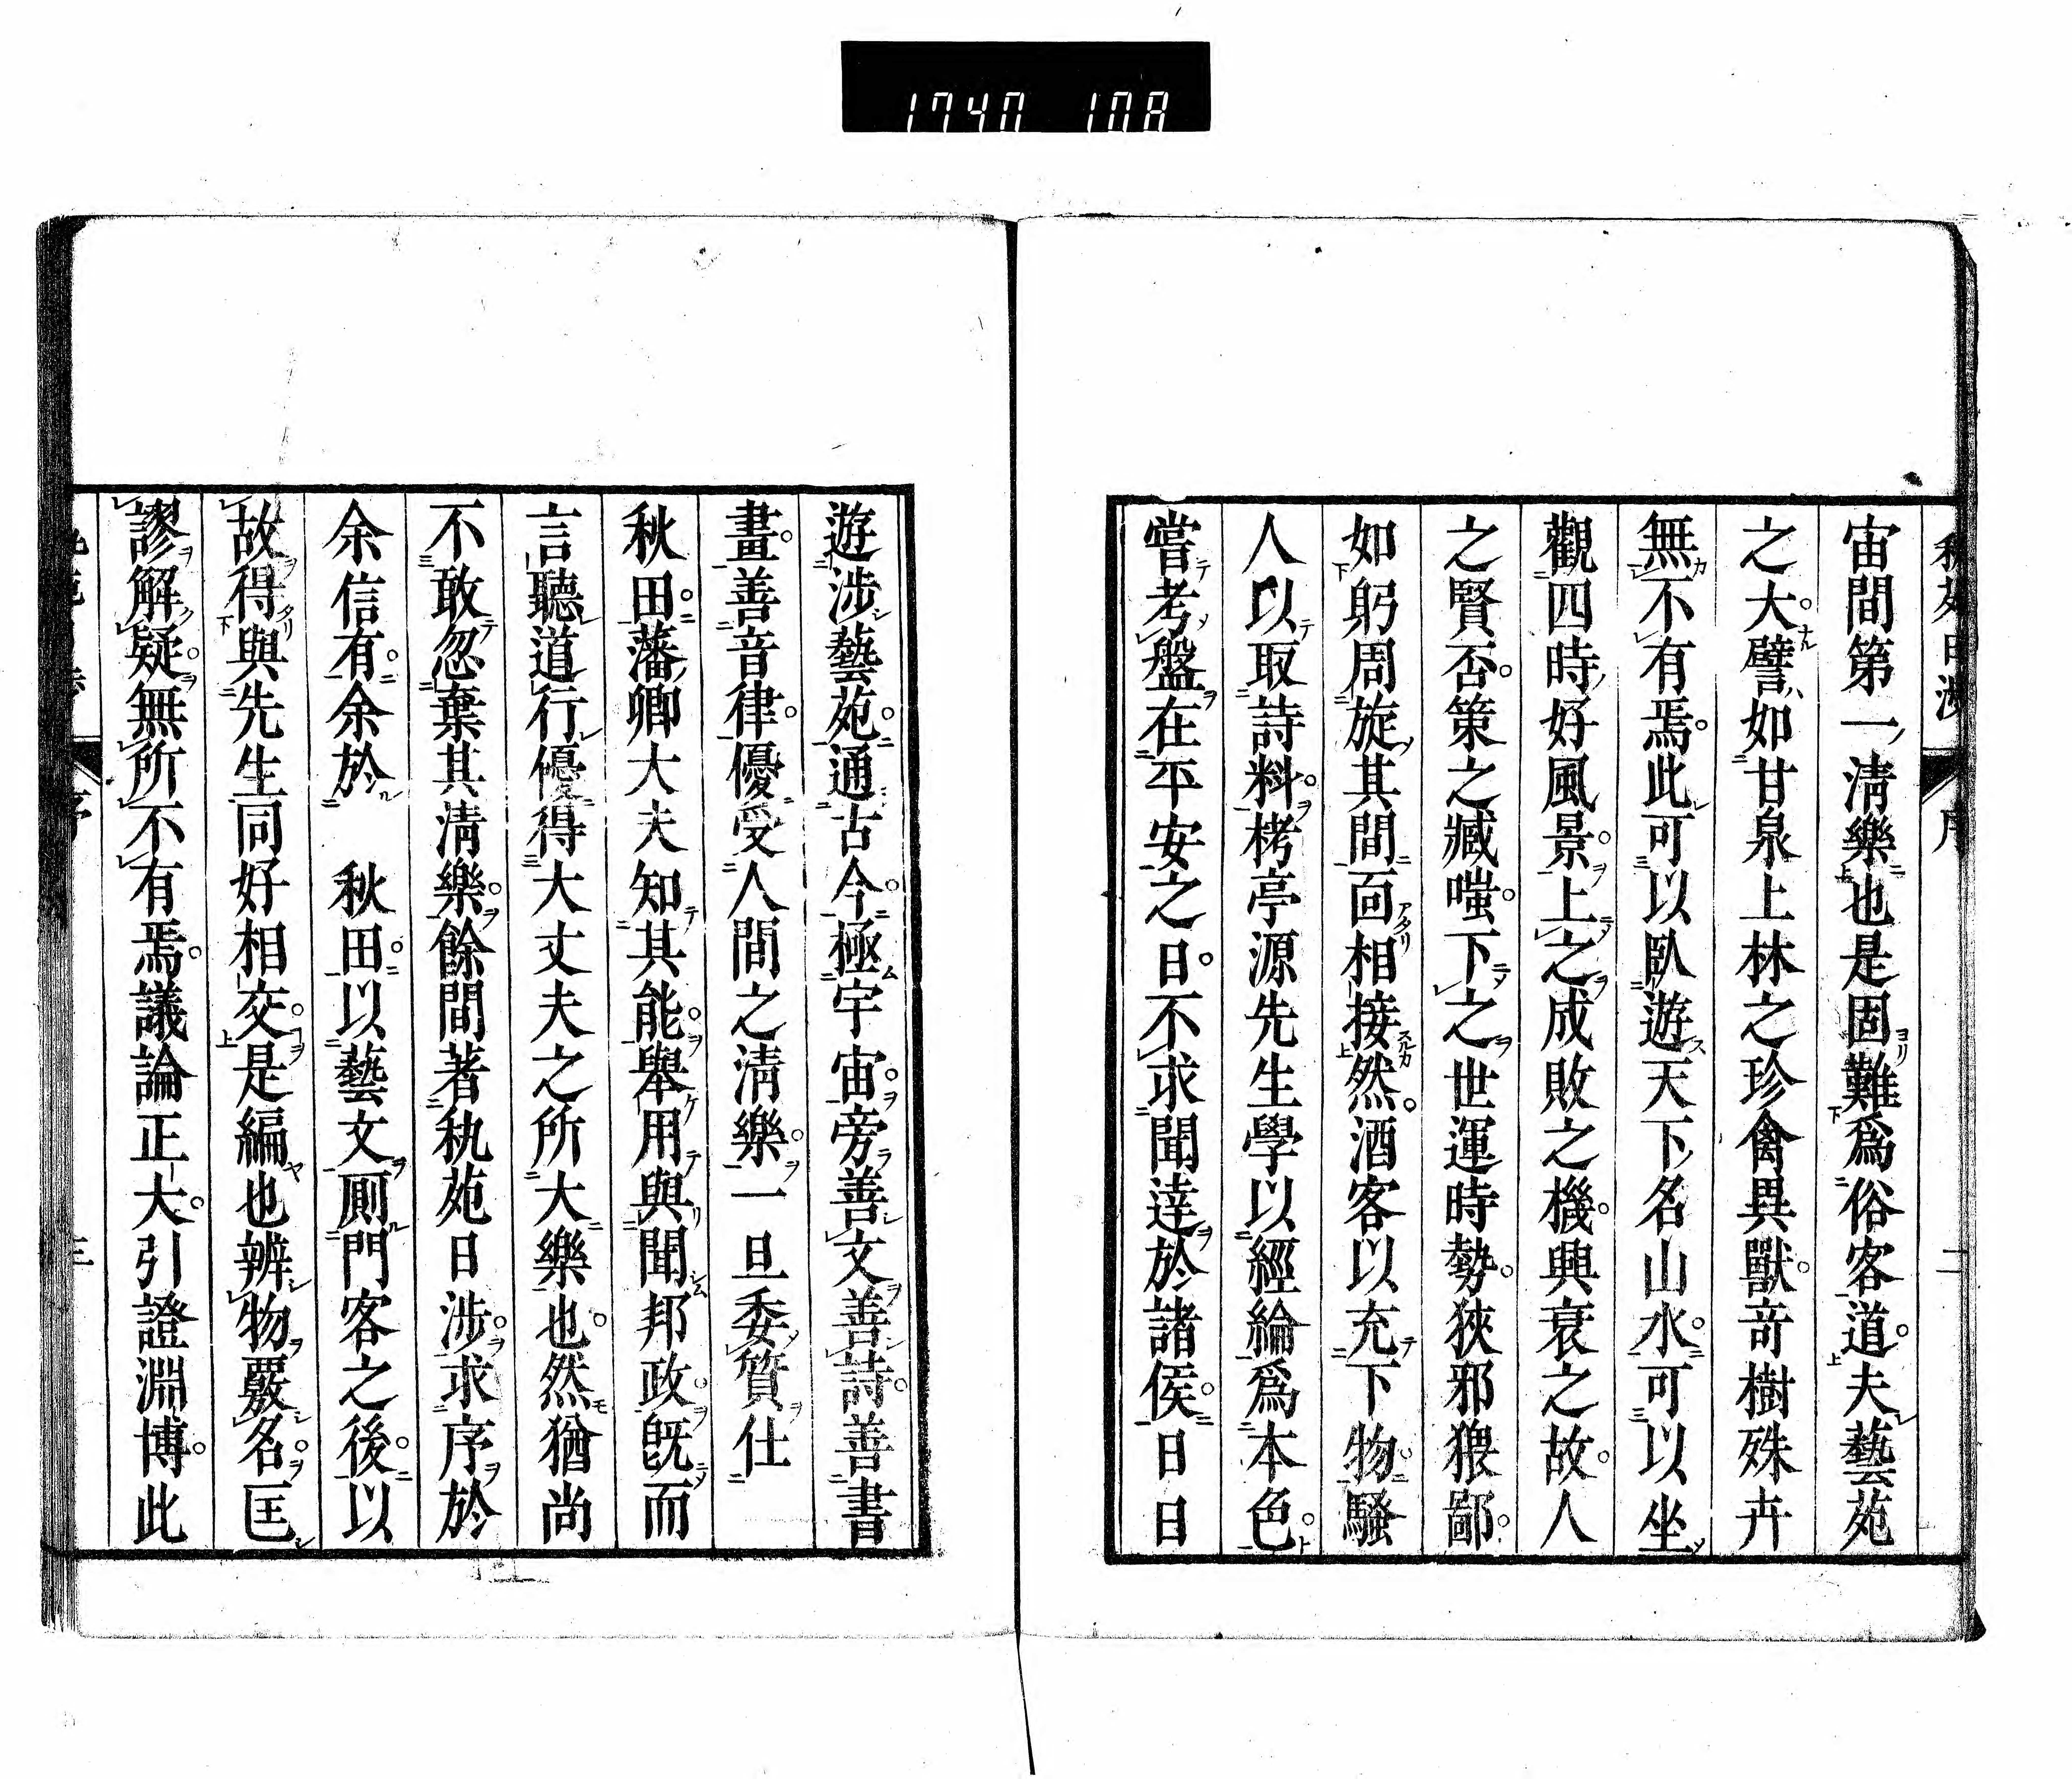 1740 108
序
二
宙間第一清樂也是固難爲俗客道夫藝苑
之大譬如甘泉上林之珍禽異獸奇樹殊卉
無不有焉此可以臥遊天下名山水可以坐
觀四時好風景上之成敗之機興衰之故人
之賢否策之臧嗤下之世運時勢狹邪猥鄙
如躬周旋其間面相接然酒客以充下物騷
人以取詩料栲亭源先生學以經綸爲本色
嘗考盤在平安之日不求聞達於諸侯日日
遊涉藝苑通古今極宇宙旁善文善詩善書
畫善音律優受人間之清樂一旦委質仕
秋田藩卿大夫知其能舉用與聞邦政旣而
言聽道行優得大丈夫之所大樂也然猶尚
不敢忽棄其清樂餘間著秇苑日涉求序於
余信有余於　秋田以藝文厠門客之後以
故得與先生同好相交是編也辨物覈名匡
謬解疑無所不有焉議論正大引證淵博此
序
三